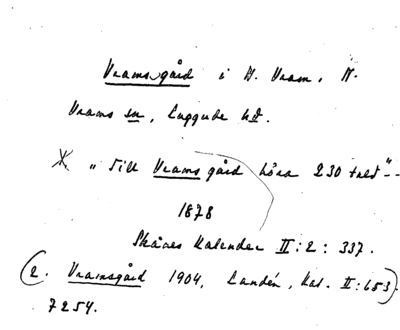 Vramsgård i N. Vram, N.
Vrams sn, Luggude hd.
X "Till Vrams gård höra 230 tred"--
1878
Skånes Kalender II:2: 337.
(2. Vramsgård 1904, Landén, Kat. II:653).
7254.